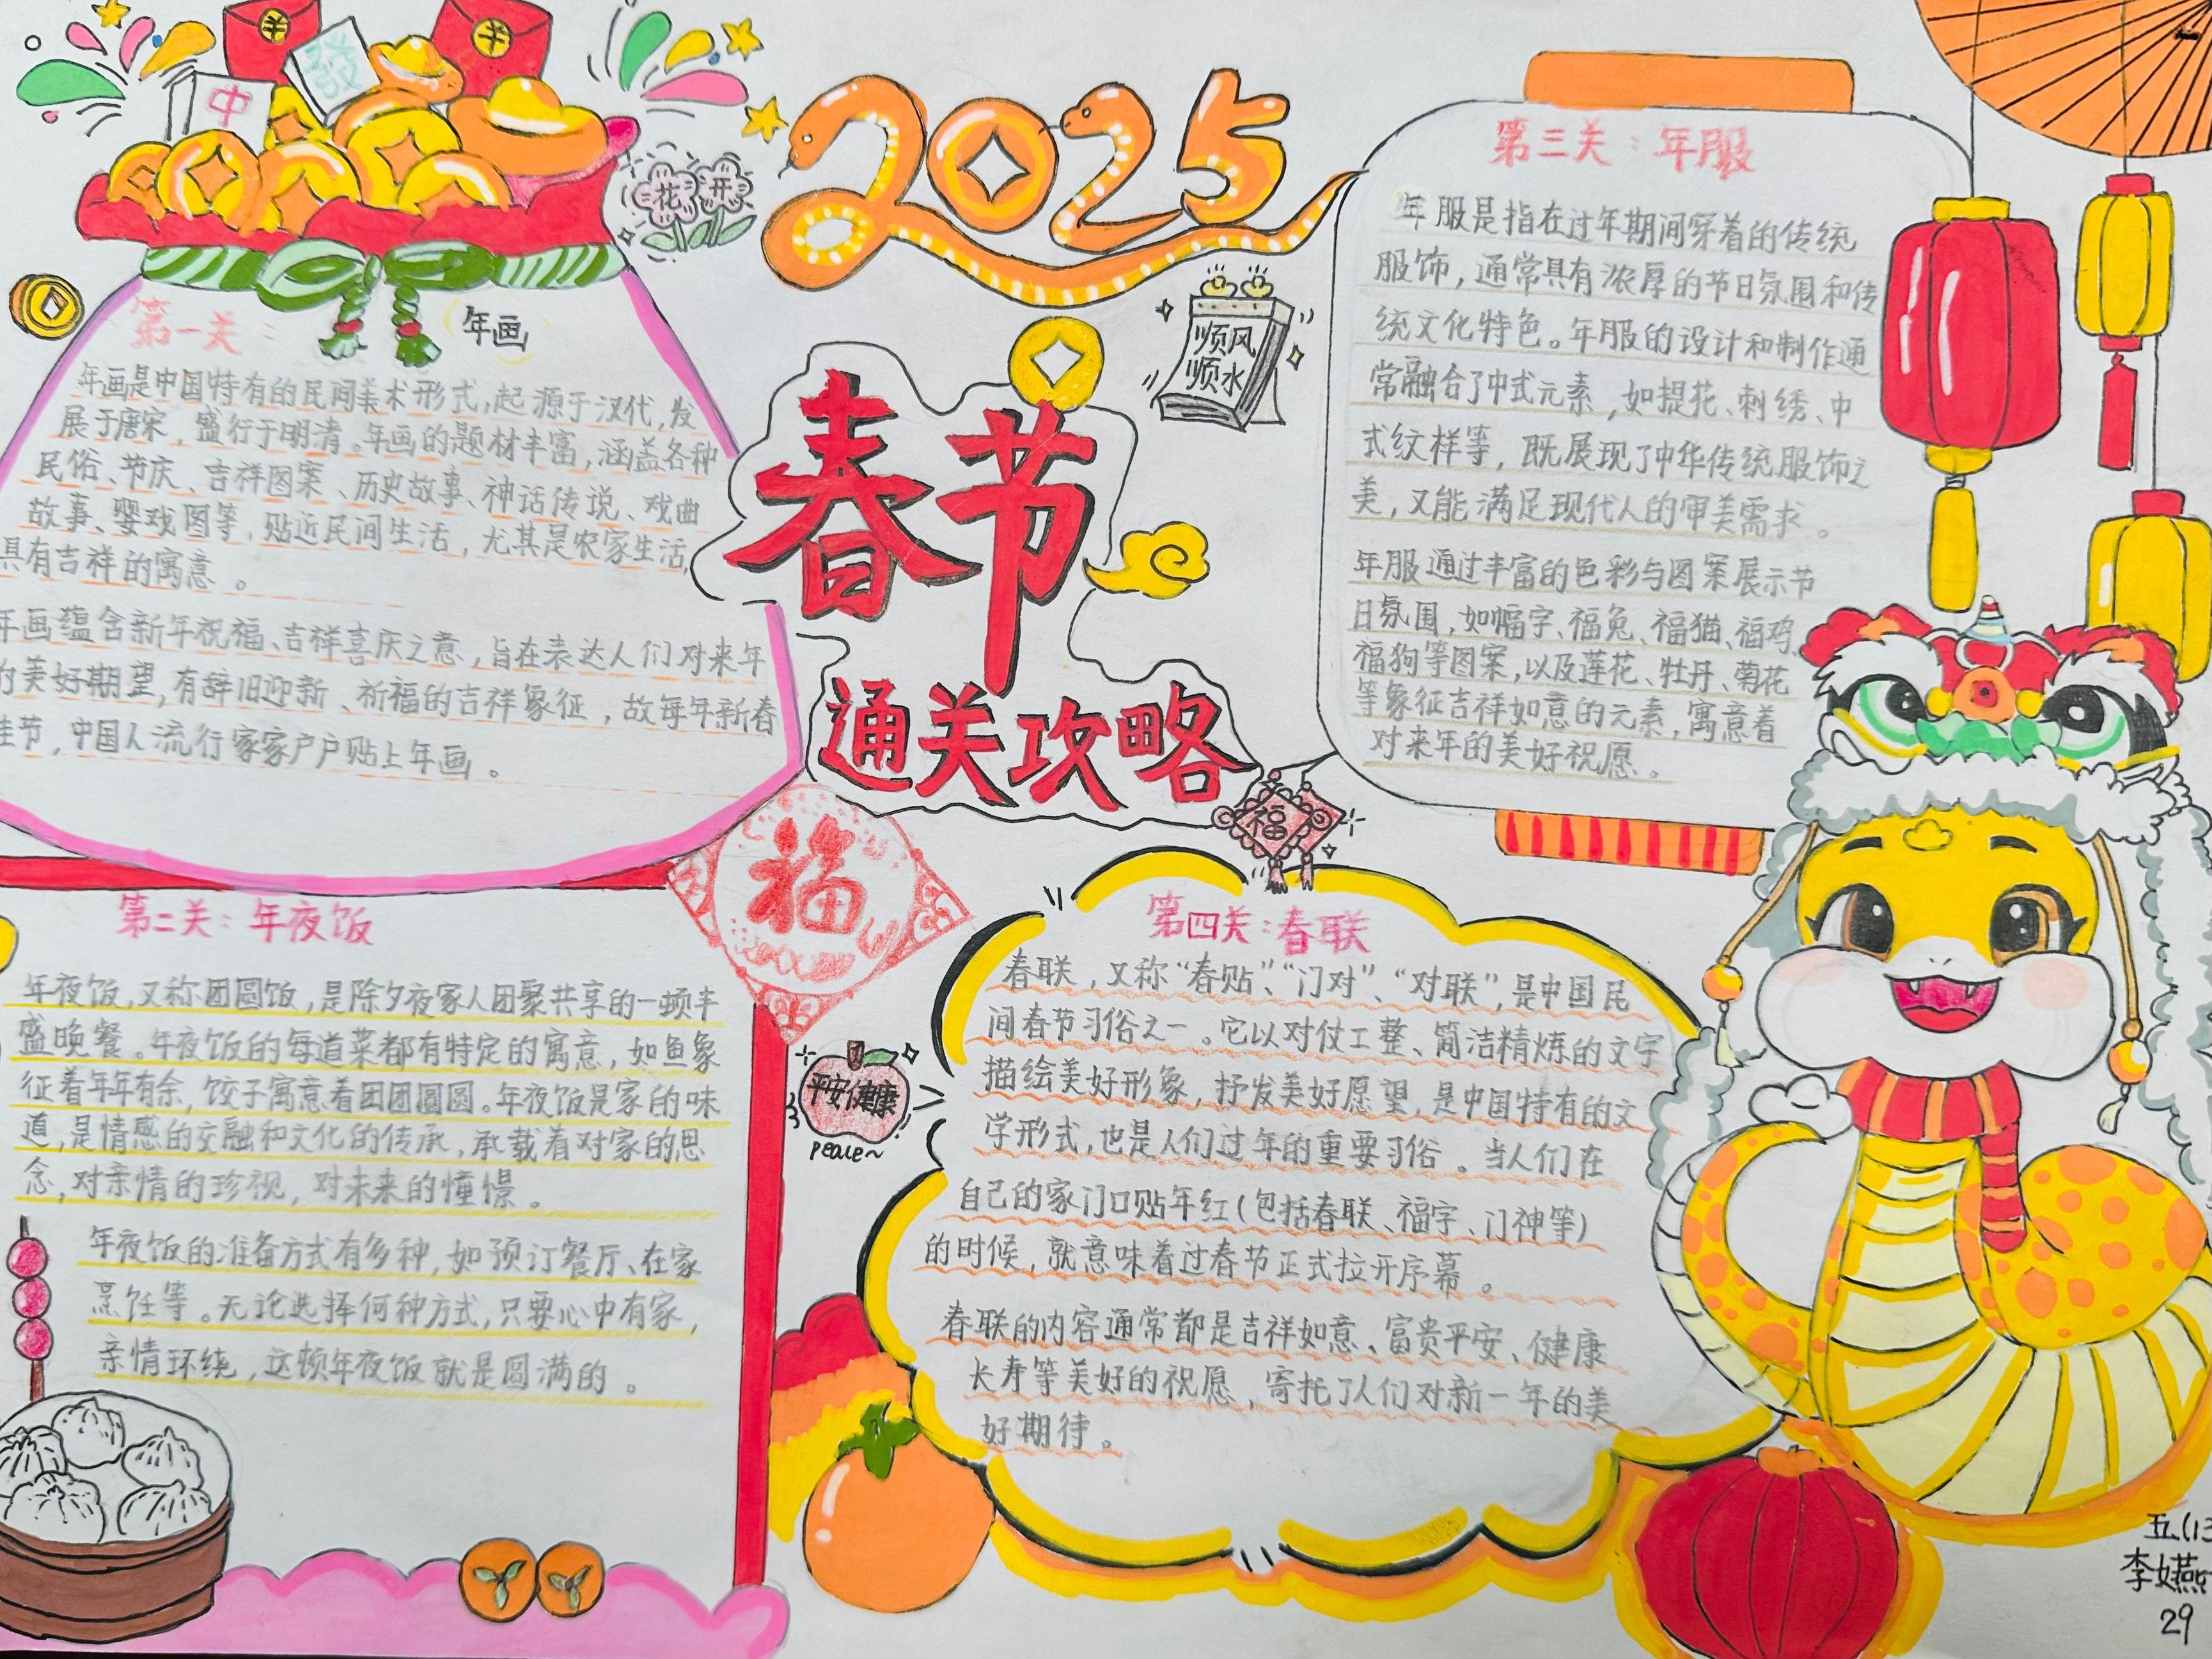 中
發
花开
2025
顺风
顺水
春节
通关攻略
福
福
平安健康
peace~
第一关：
年画
年画是中国特有的民间美术形式,起源于汉代,发
展于唐宋，盛行于明清。年画的题材丰富,涵盖各种
民俗、节庆、吉祥图案、历史故事、神话传说、戏曲
故事、婴戏图等，贴近民间生活，尤其是农家生活,
具有吉祥的寓意。
年画蕴含新年祝福、吉祥喜庆之意，旨在表达人们对来年
的美好期望,有辞旧迎新、祈福的吉祥象征，故每年新春
佳节，中国人流行家家户户贴上年画。
第二关：年夜饭
年夜饭,又称团圆饭,是除夕夜家人团聚共享的一顿丰
盛晚餐。年夜饭的每道菜都有特定的寓意，如鱼象
征着年年有余，饺子寓意着团团圆圆。年夜饭是家的味
道,是情感的交融和文化的传承，承载着对家的思
念,对亲情的珍视，对未来的憧憬。
年夜饭的准备方式有多种，如预订餐厅、在家
烹饪等。无论选择何种方式,只要心中有家,
亲情环绕，这顿年夜饭就是圆满的。
第三关：年服
年服是指在过年期间穿着的传统
服饰，通常具有浓厚的节日氛围和传
统文化特色。年服的设计和制作通
常融合了中式元素，如提花、刺绣、中
式纹样等，既展现了中华传统服饰之
美，又能满足现代人的审美需求。
年服通过丰富的色彩与图案展示节
日氛围，如福字、福兔、福猫、福鸡、
福狗等图案,以及莲花、牡丹、菊花
等象征吉祥如意的元素，寓意着
对来年的美好祝愿。
第四关：春联
春联，又称“春贴”、“门对”、“对联”,是中国民
间春节习俗之一。它以对仗工整、简洁精炼的文字
描绘美好形象，抒发美好愿望，是中国特有的文
学形式,也是人们过年的重要习俗。当人们在
自己的家门口贴年红(包括春联、福字、门神等)
的时候，就意味着过春节正式拉开序幕。
春联的内容通常都是吉祥如意、富贵平安、健康
长寿等美好的祝愿，寄托了人们对新一年的美
好期待。
五(13
李嬿
29